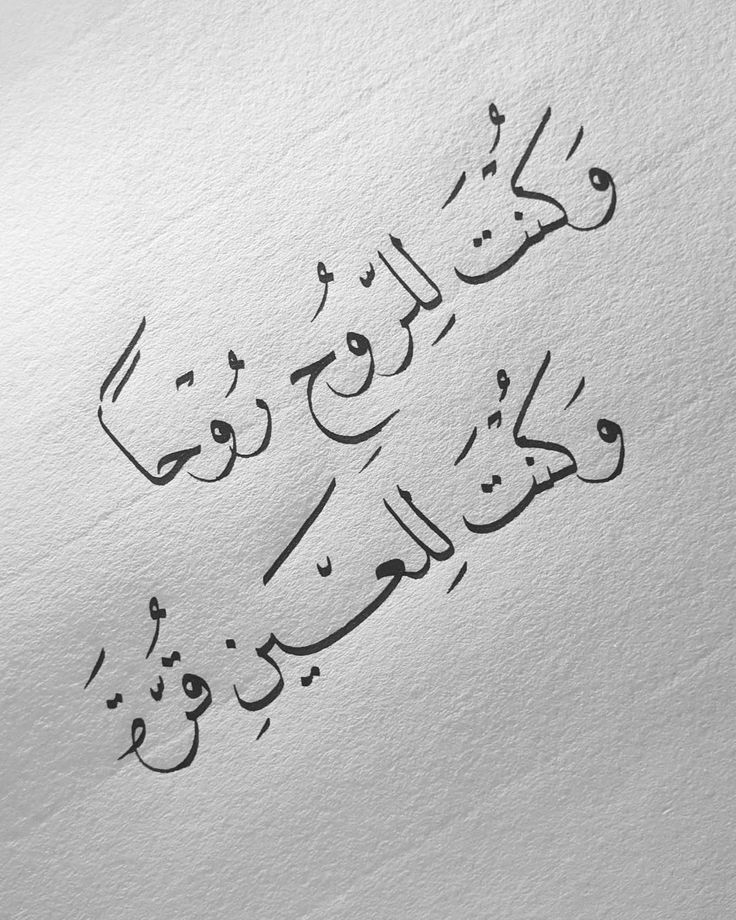 وَكُنتَ لِلرّوُحِ رُوْحاً
وَكُنتَ لِلعّينِ قُرّةَ